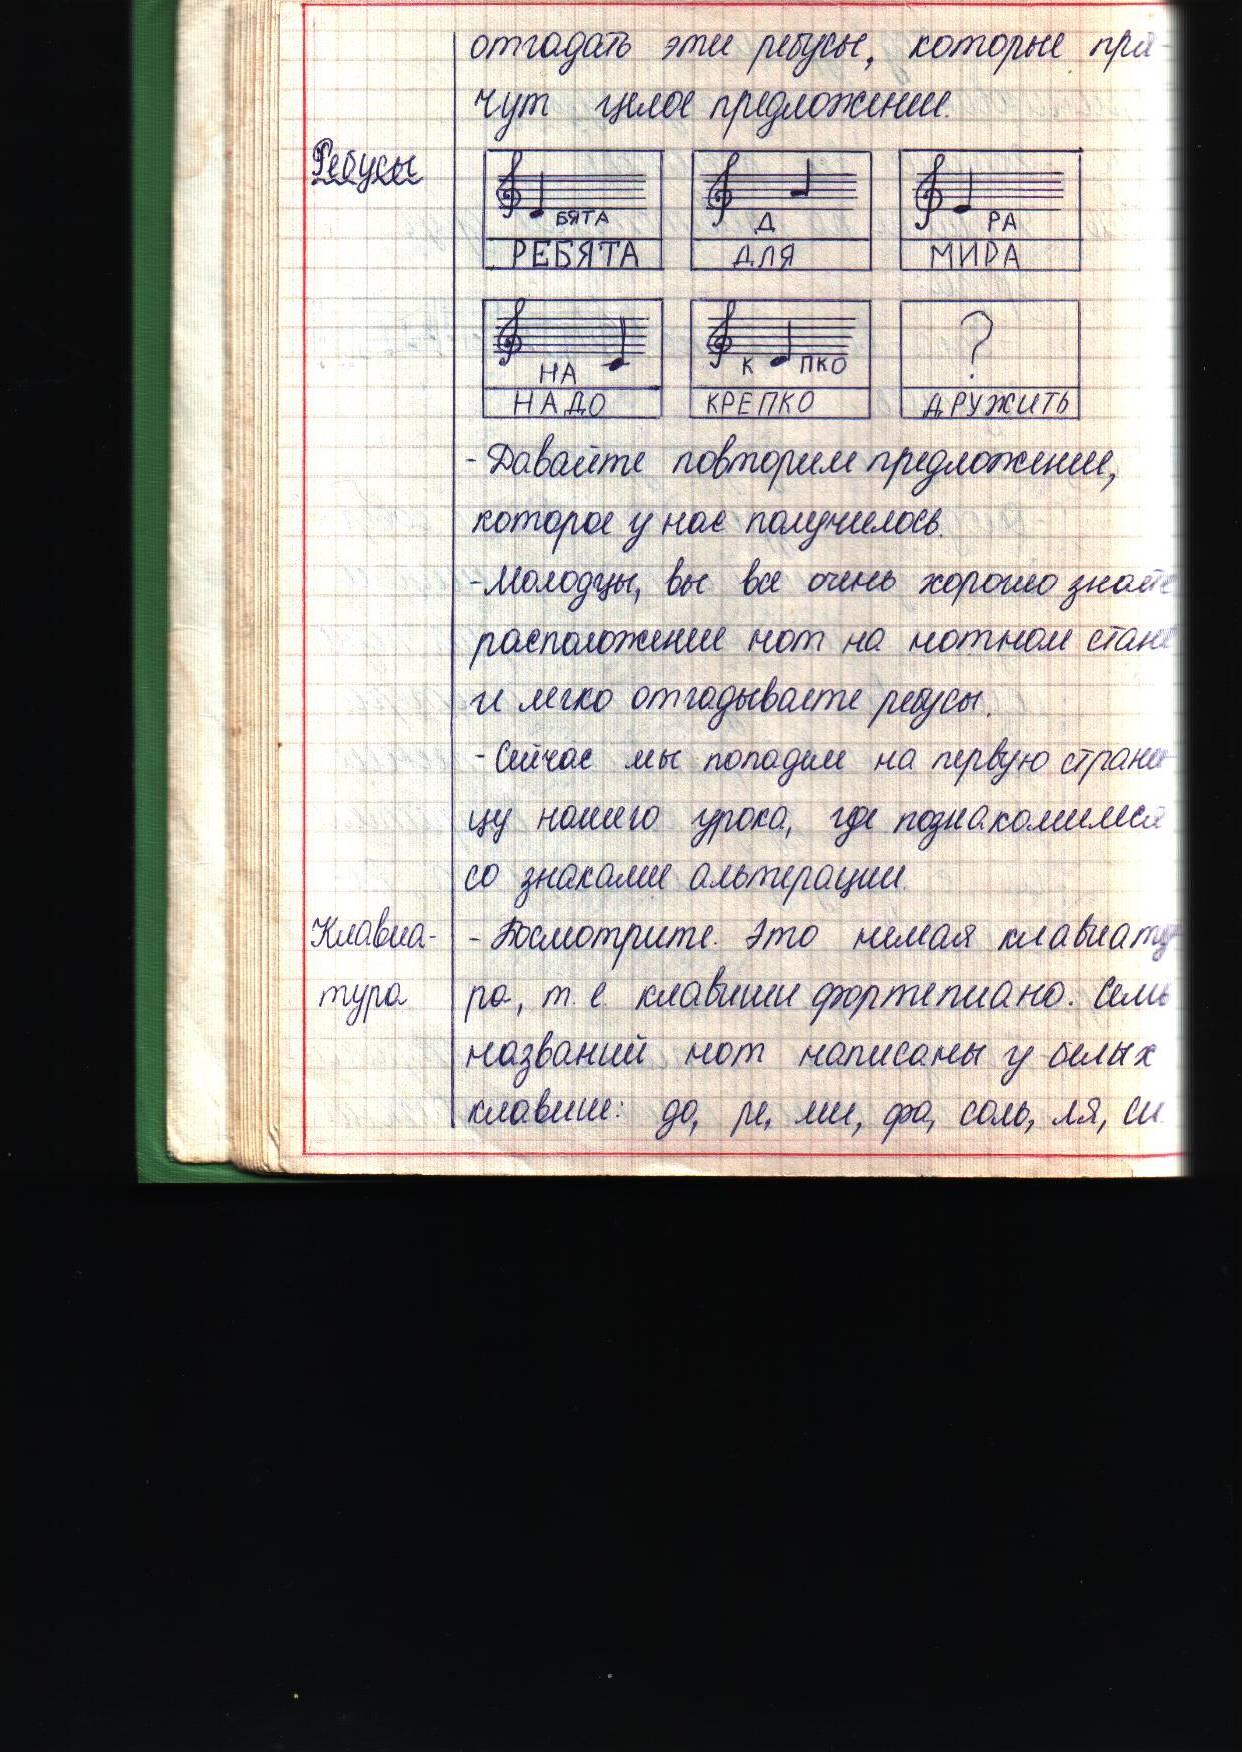 отгадать эти ребусы, которые пря-
чут целое предложение.
Ребусы
БЯТА Д РА
РЕБЯТА ДЛЯ МИРА
НА К ПКО ?
НАДО КРЕПКО ДРУЖИТЬ
- Давайте повторим предложение,
которое у нас получилось.
- Молодцы, вы все очень хорошо знаете
расположение нот на нотном стане
и легко отгадываете ребусы.
- Сейчас мы попадем на первую страни-
цу нашего урока, где познакомимся
со знаками альтерации.
Клавиа- - Посмотрите. Это немая клавиату
тура ра, т. е. клавиши фортепиано. Семь
названий нот написаны у белых
клавиш: до, ре, ми, фа, соль, ля, си.